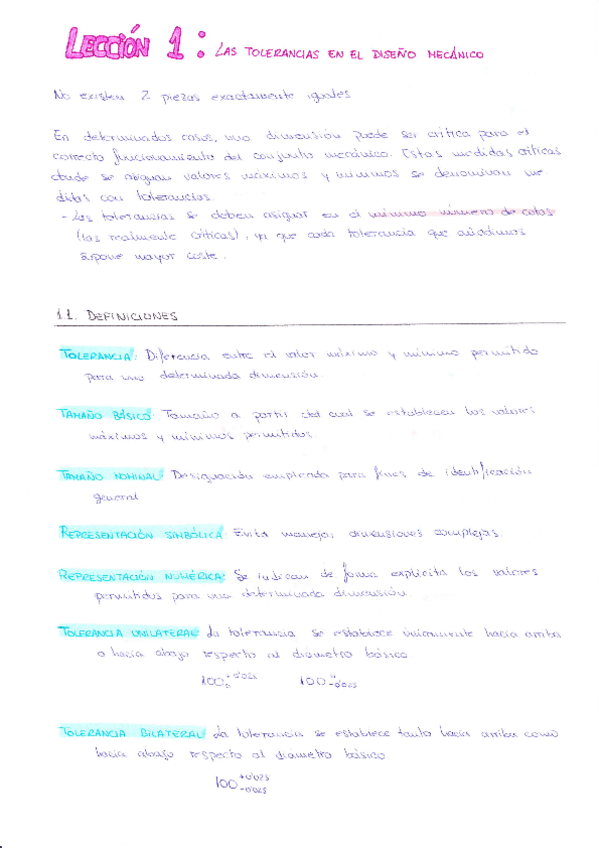 LECCIÓN 1: LAS TOLERANCIAS EN EL DISEÑO MECÁNICO
No existen 2 piezas exactamente iguales
En determinados casos, una dimensión puede ser crítica para el
correcto funcionamiento del conjunto mecánico. Estas medidas críticas
donde se asignan valores máximos y mínimos se denominan me
didas con tolerancias.
- Las tolerancias se deben asignar en el mínimo número de cotas
(las realmente críticas), ya que cada tolerancia que añadimos
supone mayor coste.
1.1. DEFINICIONES
TOLERANCIA: Diferencia entre el valor máximo y mínimo permitido
para una determinada dimensión.
TAMAÑO BÁSICO: Tamaño a partir del cual se establecen los valores
máximos y mínimos permitidos.
TAMAÑO NOMINAL: Designación empleada para fines de identificación
general
REPRESENTACIÓN SIMBÓLICA: Evita manejar dimensiones complejas.
REPRESENTACIÓN NUMÉRICA: Se indican de forma explícita los valores
permitidos para una determinada dimensión.
TOLERANCIA UNILATERAL: La tolerancia se establece únicamente hacia arriba
o hacia abajo respecto al diametro básico.
100 +0'025 0 100 0 -0'025
TOLERANCIA BILATERAL: La tolerancia se establece tanto hacia arriba como
hacia abajo respecto al diametro básico.
100 +0'025 -0'025